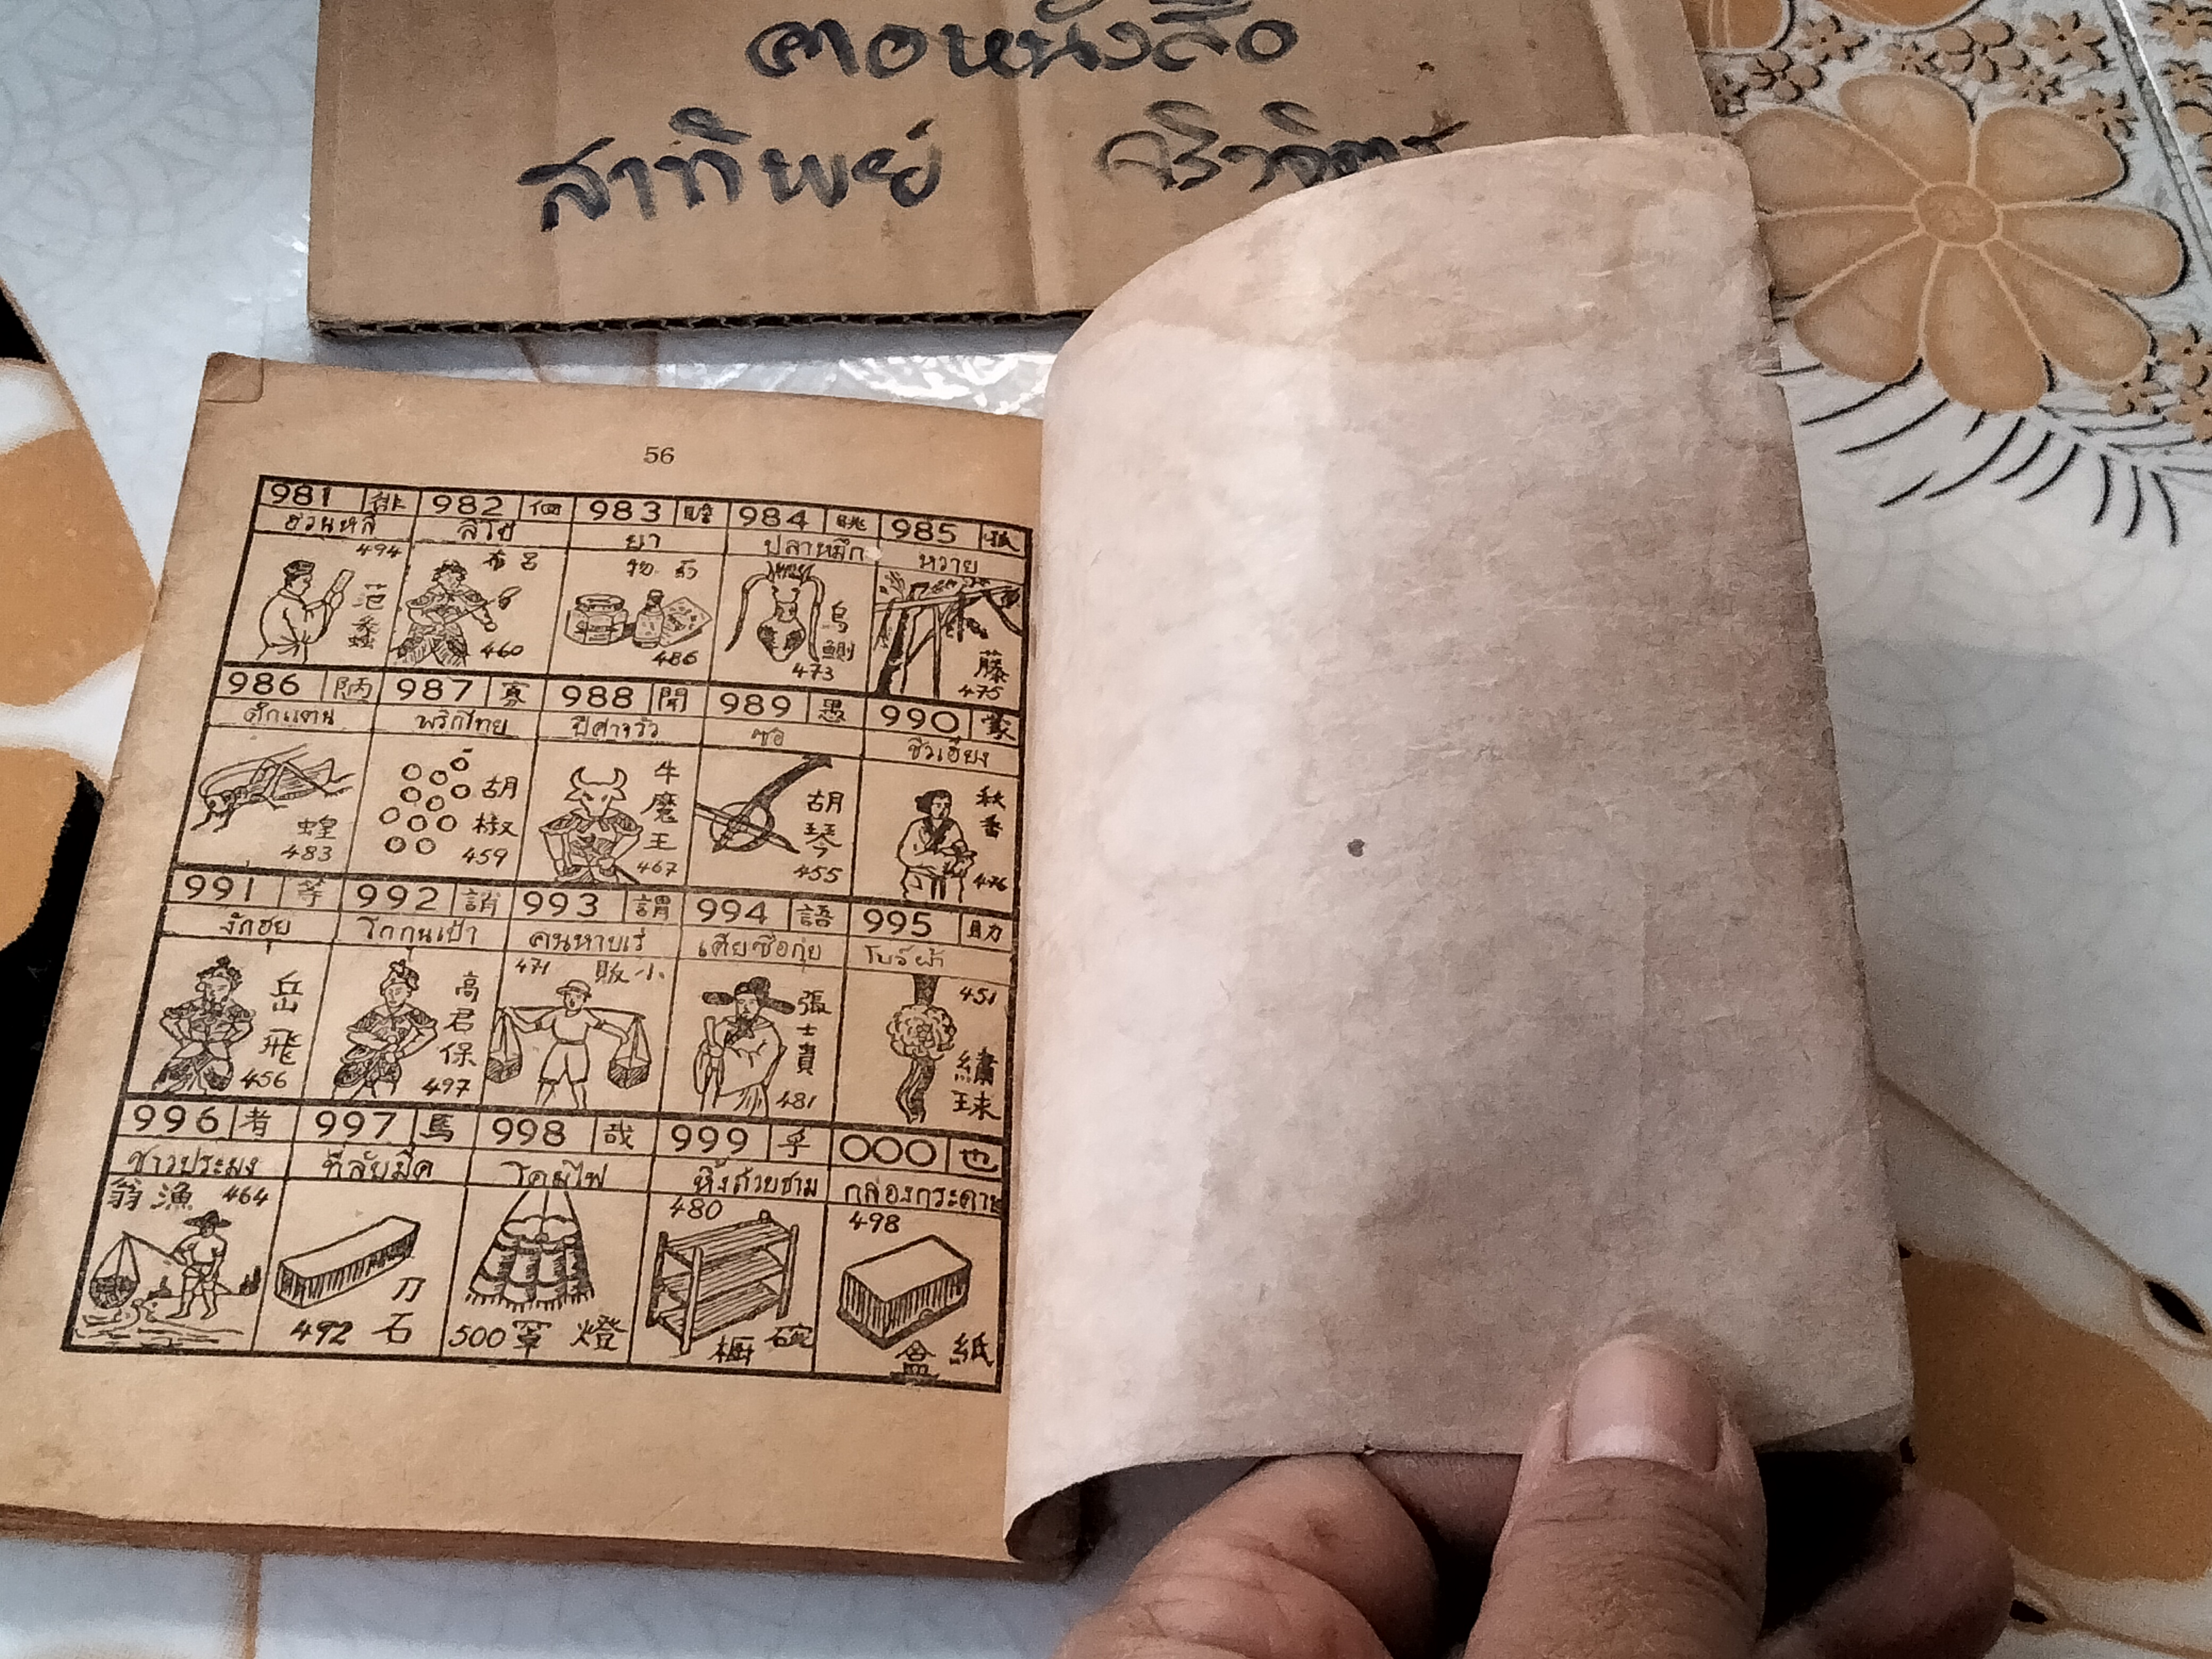 คอหนังสือ
สาทิพย์
56
981 982 個 983 984 眺 985 狐
ฮวนหลี ลิโป้ ยา ปลาหมึก หวาย
494 范
布 呂 460
486
烏 鰂 473
藤 475
986 陋 987 寡 988 聞 989 愚 990 蒙
ตั๊กแตน พริกไทย ปีศาจวัว ซอ ชิวเฮียง
蝗 483
胡 椒 459
牛 魔 王 467
胡 琴 455
秋 香 476
991 等 992 誚 993 謂 994 語 995 助
งักฮุย โกกุนเป้า คนหาบเร่ เตียซือกุ่ย โบว์ผ้า
岳 飛 456
高 君 保 497
471 販 小
張 士 貴 481
451 繡 球
996 者 997 焉 998 哉 999 乎 000 也
ชาวประมง ที่ลับมีด โคมไฟ หิ้งสวยชาม กล่องกระดาษ
翁 漁 464
492 刀 石
500 罩 燈
480 櫥 碗
498 盒 紙